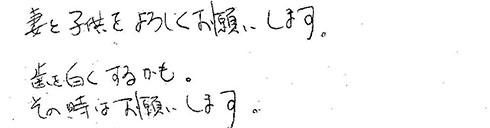 妻と子供をよろしくお願いします。
歯を白くするかも。
その時はお願いします。